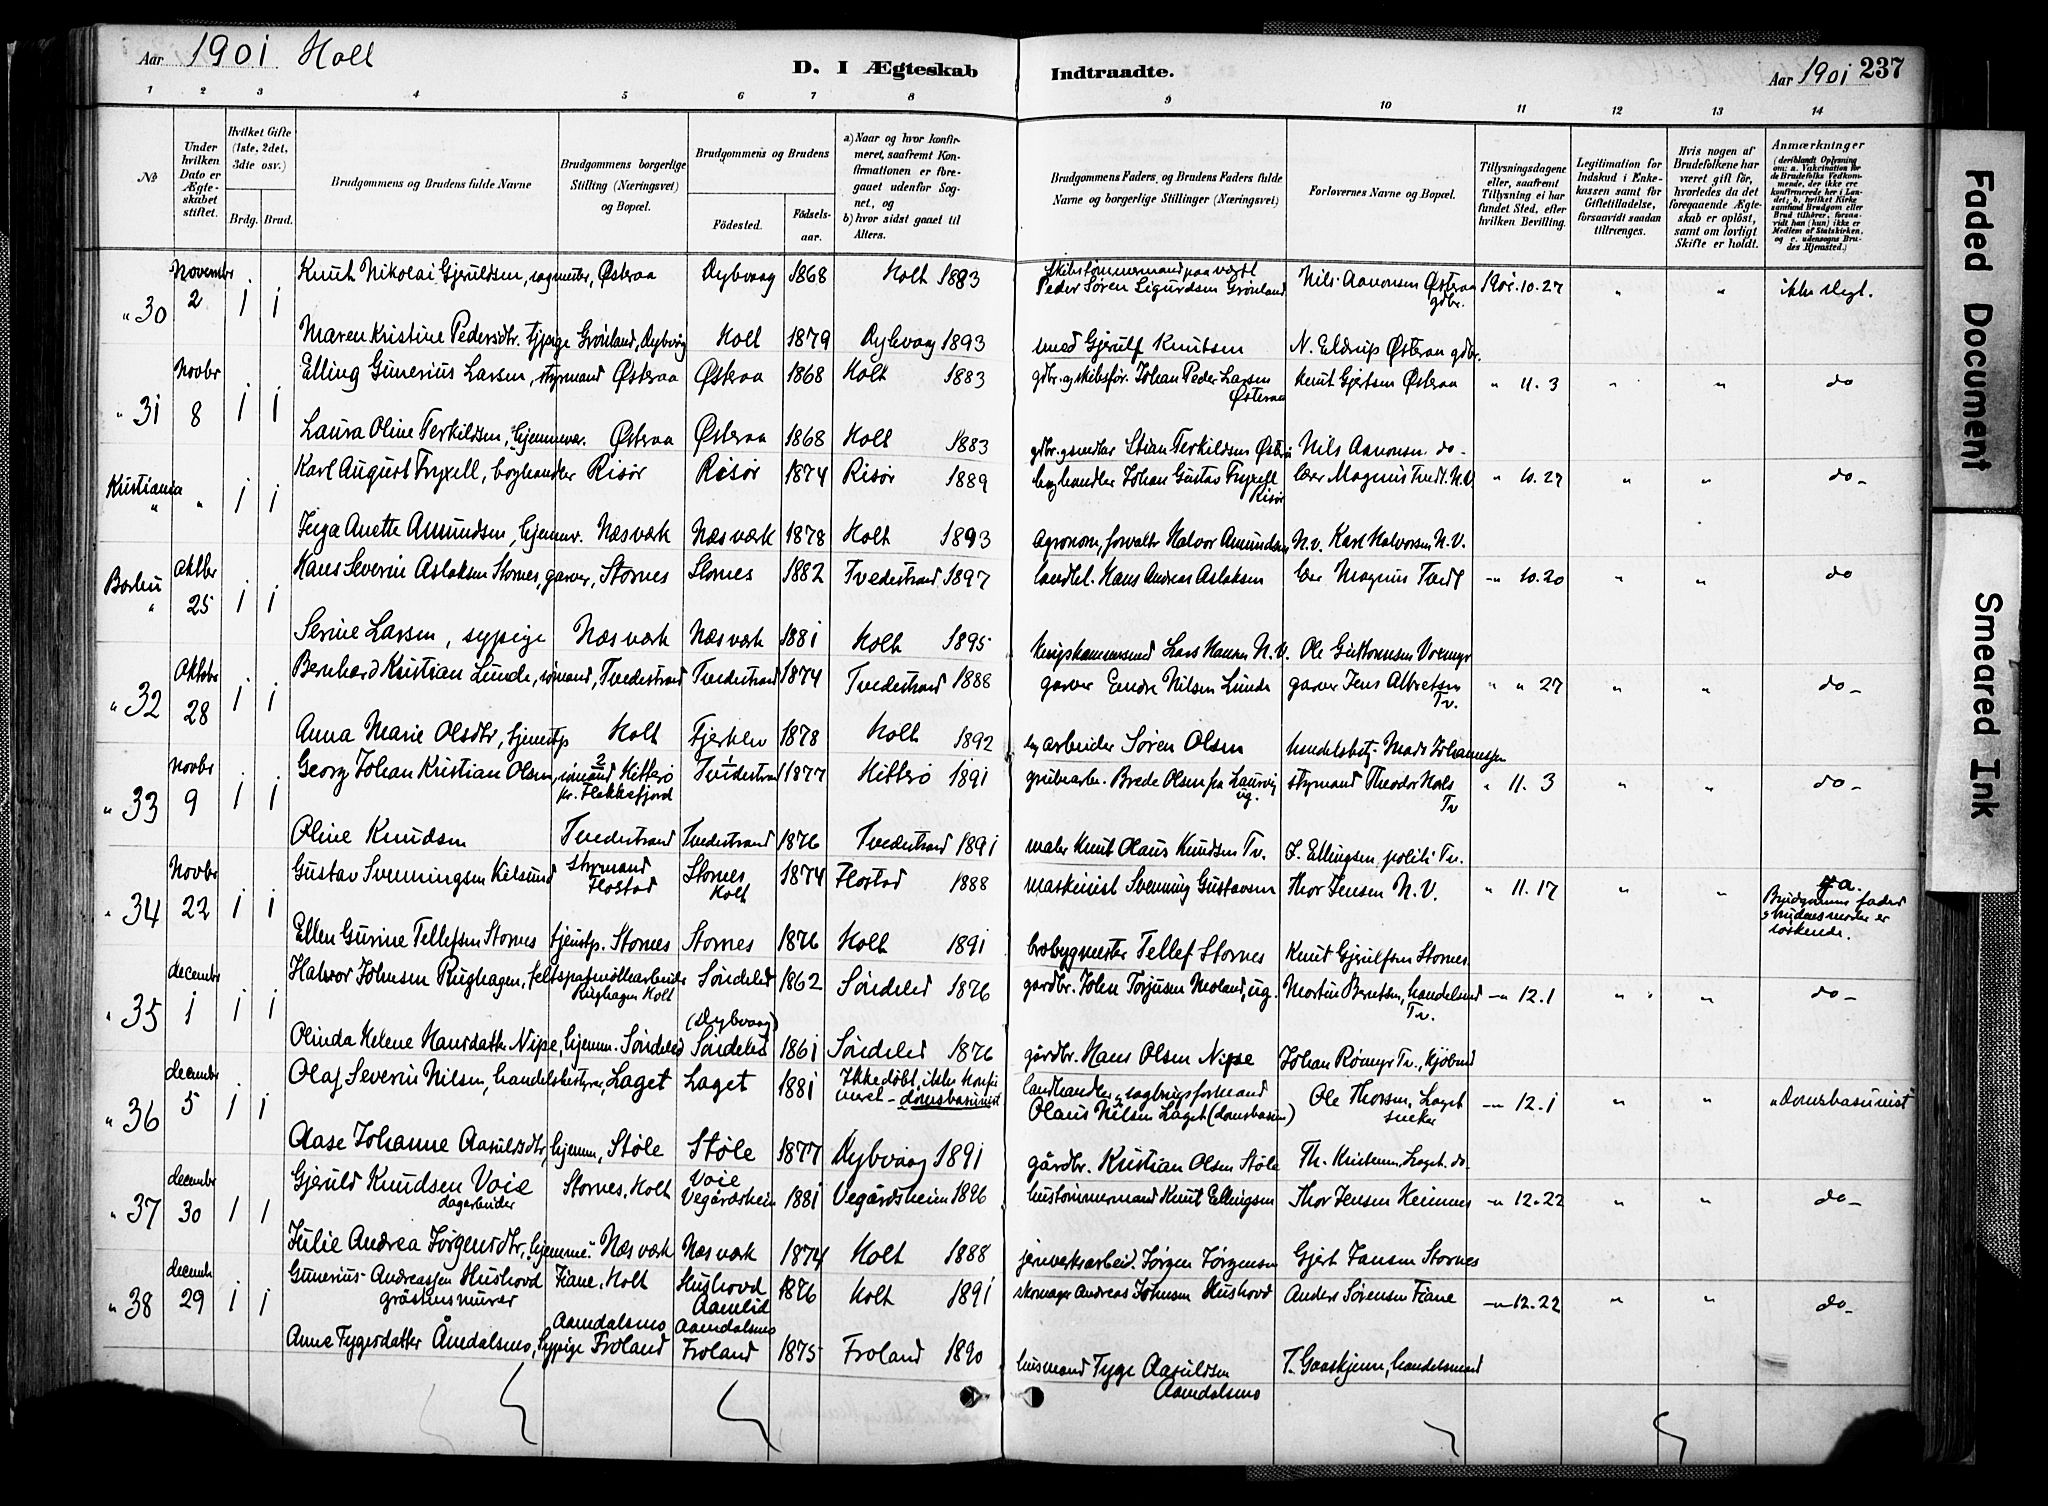 Aar 1901 Holt
D. I Ægteskab Indtraadte.
Aar 1901 237
1 2 3 4 5 6 7 8 9 10 11 12 13 14
No.
Under hvilken Dato er Ægteskabet stiftet.
Hvilket Gifte (1ste, 2det, 3die osv.)
Brdg. Brud.
Brudgommens og Brudens fulde Navne
Brudgommens borgerlige Stilling (Næringsvei) og Bopæl.
Brudgommens og Brudens
Fødested. Fødselsaar.
a) Naar og hvor konfirmeret, saafremt Konfirmationen er foregaaet udenfor Sognet, og
b) hvor sidst gaaet til Alters.
Brudgommens Faders og Brudens Faders fulde Navne og borgerlige Stillinger (Næringsvei)
Forlovernes Navne og Bopæl.
Tillysningsdagene eller, saafremt Tillysning ei har fundet Sted, efter hvilken Bevilling.
Legitimation for Indskud i Enkekassen samt for Giftetilladelse, forsaavidt saadan tiltrænges.
Hvis nogen af Brudefolkene har været gift før, hvorledes da det foregaaende Ægteskab er opløst, samt om lovligt Skifte er holdt.
Anmærkninger (deriblandt Oplysning om: a. Vakcination for de Brudefolks Vedkommende, der ikke ere konfirmerede her i Landet; b. hvilket Kirkesamfund Brudgom eller Brud tilhører, forsaavidt han (hun) ikke er Medlem af Statskirken, og c. udensogns Brudes Hjemsted.)
" 30 Novembr 2 1 1 Knut Nikolai Gjeruldsen, sagmubr, Østeraa Dybvaag 1868 Holt 1883 Skibstømmermand paa værft Peder Søren Sigurdsen Grønland Nils Aanonsen Østeraa gdbr. 1901.10.27 " " ikke slegt.
Maren Kristine Pedersdtr. tjpige Grønland, Dybvåg Holt 1879 Dybvaag 1893 smed Gjerulf Knutsen N. Eldrup Østeraa gdbr.
" 31 Novbr 8 1 1 Elling Gunerius Larsen, styrmand Østeraa Østeraa 1868 Holt 1883 gdbr. og skibsfør. Johan Peder Larsen Østeraa Knut Gjertsen Østeraa " 11.3 " " do
Laura Oline Terkildsen, hjemmev. Østeraa Østeraa 1868 Holt 1883 gdbr. Stian Terkildsen Østeraa Nils Aanonsen. do-
Kristiania " " 1 1 Karl August Fryxell, boghandler Risør Risør 1874 Risør 1889 boghandler Johan Gustav Fryxell Risør lær Magnus Tvedt. N.V. " 10.27 " " do-
Inga Anette Amundsen, hjemmv. Næs værk Næs værk 1878 Holt 1893 agronom, forvalter Halvor Amundsen N.v. Karl Halvorsen N.V.
" Oktbr 25 1 1 Hans Severin Aslaksen Stornes, garver, Stornes Stornes 1882 Tvedestrand 1897 landhl. Hans Andreas Aslaksen lær Magnus Tvedt -" 10.20 " " do
Serine Larsen, sypige Næs værk Næs værk 1881 Holt 1895 Lars Hansen N.V. Ole Guttormsen
" 32 Oktobr 28 1 1 Bernhard Kristian Lunde, sømand, Tvedestrand Tvedestrand 1874 Tvedestrand 1888 garver Endre Nilsen Lunde garver Jens Albretsen Tv. " " 27 " " do-
Anna Marie Olsdtr, tjenestp Holt Fjerkleiv 1878 Holt 1892 arbeider Søren Olsen handelsbetj. Mads Johannesen
" 33 Novbr 9 1 1 Georg Johan Kristian Olsen, sømand, Hitterø pr. Flekkefjord Tvedestrand 1877 Hitterø 1891 grubearbr. Brede Olsen fra Laurvig ug. styrmand Theodor Næs Tv " 11.3 " " do-
Oline Knudsen Tvedestrand Tvedestrand 1876 Tvedestrand 1891 maler Knut Olaus Knudsen Tv. L. Ellingsen politi Tv.
" 34 Novbr 22 1 1 Gustav Svenningsen Kilsund styrmand Flostad Stornes Holt 1874 Flostad 1888 maskinist Svenning Gustavsen Thor Jensen N.V. " 11.17 " " a. Brudgommens fader og brudens moder er søskende.
Ellen Gurine Tellefsen Stornes tjenstp. Stornes Stornes 1876 Holt 1891 brobygmester Tellef Stornes Knut Gjerulfsen Stornes
" 35 decembr 1 1 1 Halvor Johnsen Rughagen, feltspatmøllearbeider Rughagen Holt Søndeled 1862 Søndeled 1876 gårdbr. John Torjusen Moland, ug. Morten Berntsen, handelsmd Tv. -" 12.1 " " do-
Olinda Helene Hansdatter Nipe, hjemm. Søndeled (Dybvaag) Søndeled 1861 Søndeled 1876 gårdbr. Hans Olsen Nipe Johan Rømyr Tv., kjøbmd
" 36 decembr 5 1 1 Olaf Severin Nilsen, handelsbestyrer, Laget Laget 1881 Ikke døbt, ikke konfirmeret - domsbasunist landhandler og sagbrugsformand Olaus Nilsen Laget (domsbasun) Ole Thorsen, Laget snekker -" 12.1 " " "domsbasunist"
Aase Johanne Aasulfsdtr, hjemm, Støle Støle 1877 Dybvaag 1891 gårdbr. Kristian Olsen Støle Th. Kristensen, Laget. do.
" 37 decembr 30 1 1 Gjeruld Knudsen Voie dagarbeider Stornes, Holt Voie Vegårdsheim 1881 Vegårdsheim 1896 hustømmermand Knut Ellingsen Thor Jensen Heimnes -" 12.22 " " do-
Julie Andrea Jørgensdtr, hjemme. Næs værk Næs værk 1874 Holt 1888 jernverksarbeid. Jørgen Jørgensen Gjert Jansen Stornes
" 38 decemb 29 1 1 Gunerius Andreassen Hushovd gråstensmurer Fiane, Holt Hushovd Aamlid 1876 Holt 1891 skomager Andreas Johnsen Hushovd Anders Sørensen Fiane -" 12.22 " " do-
Anne Tygesdatter Åmdalsmo, sypige Aamdalsmo Froland Aamdalsmo Froland 1875 Froland 1890 husmand Tyge Aasuldsen Aamdalsmo T. Gaaskjenn, handelsmand
Faded Document
Smeared Ink